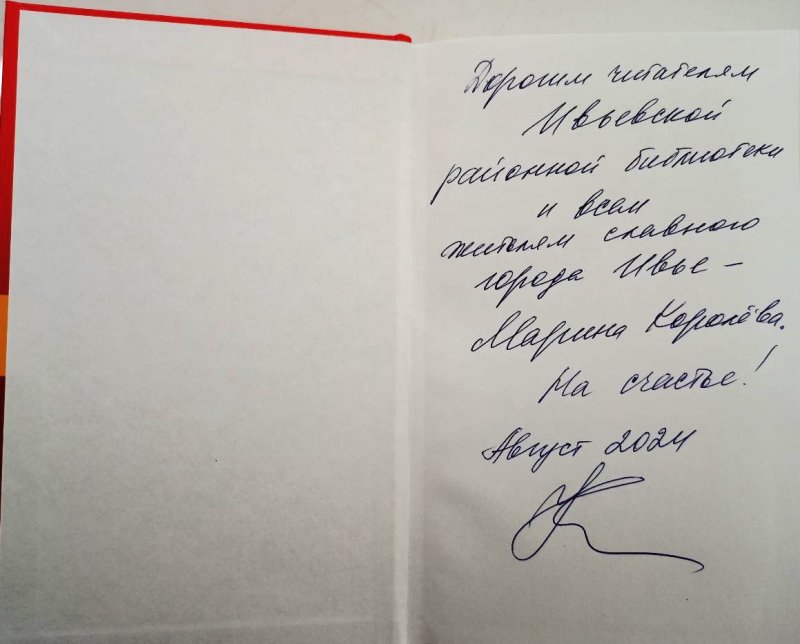 Дорогим читателям
Ивьевской
районной библиотеки
и всем
жителям славного
города Ивье –
Марина Королёва.
На счастье!
Август 2024